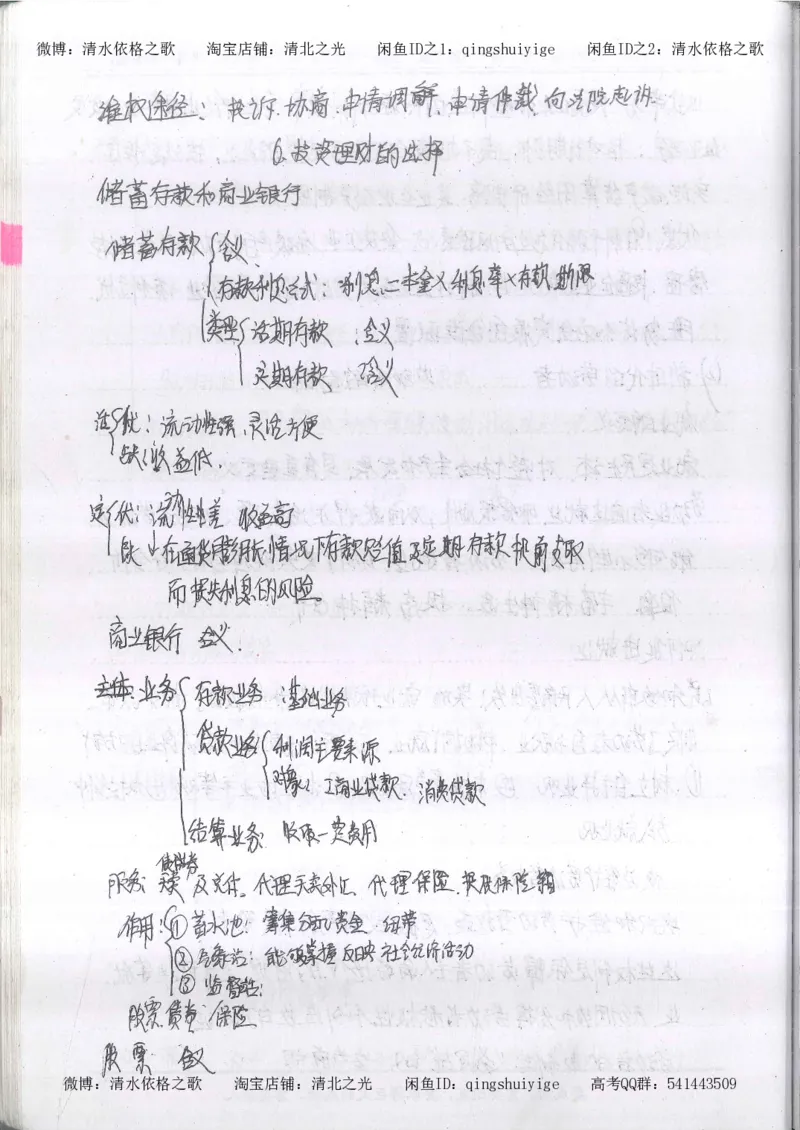 微博：清水依格之歌 淘宝店铺：清北之光 闲鱼ID之1：qingshuiyige 闲鱼ID之2：清水依格之歌
维权途径：投诉.协商.申请调解.申请仲裁 向法院起诉.
6.投资理财的选择
储蓄存款和商业银行
储蓄存款 含义
存款利息公式：利息=本金×利息率×存款期限
类型 活期存款：含义
定期存款 含义
活 优：流动性强、灵活方便
缺：收益低.
定 优：流动性差 收益高
缺：在通货膨胀情况下存款贬值及定期存款提前支取
而损失利息的风险。
商业银行 含义：
主体：业务 存款业务：基础业务
贷款业务 利润主要来源
对象：工商业贷款、消费贷款
结算业务： 收取一定费用
服务 债券 买卖及兑付、代理买卖外汇 代理保险、提供保险箱
作用：①蓄水池：筹集分配资金 纽带
② 能够掌握反映社会经济活动
③ 监督
股票 债券 保险
股票 含义
微博：清水依格之歌 淘宝店铺：清北之光 闲鱼ID：qingshuiyige 高考QQ群：541443509